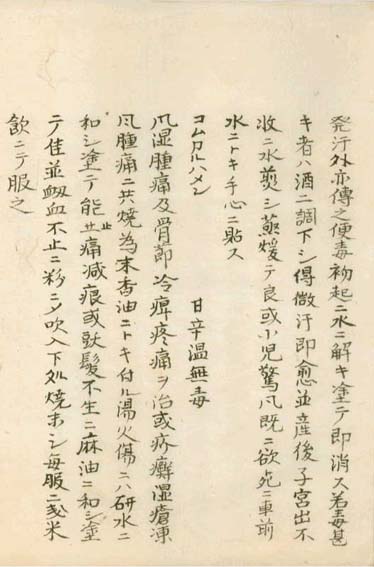 発汗外亦傳之便毒初起ニ水ニ解キ塗テ即消ス若毒甚
キ者ハ酒ニ調下シ得微汗即愈並産後子宮出不
收ニ水煎シ薫煖テ良或小児驚風既ニ欲死ニ車前
水ニトキ手心ニ貼ス
コムカルハメン 甘辛温無毒
風湿腫痛及骨節冷痺疼痛ヲ治或疥癬湿瘡凍
風腫痛ニ共焼為末香油ニトキ付ル湯火傷ニハ研水ニ
和シ塗テ能止痛減痕或髪不生ニ麻油ニ和シ塗
テ佳並衂血不止ニ粉ニメ吹入下処焼末シ毎服二戔米
飲ニテ服之